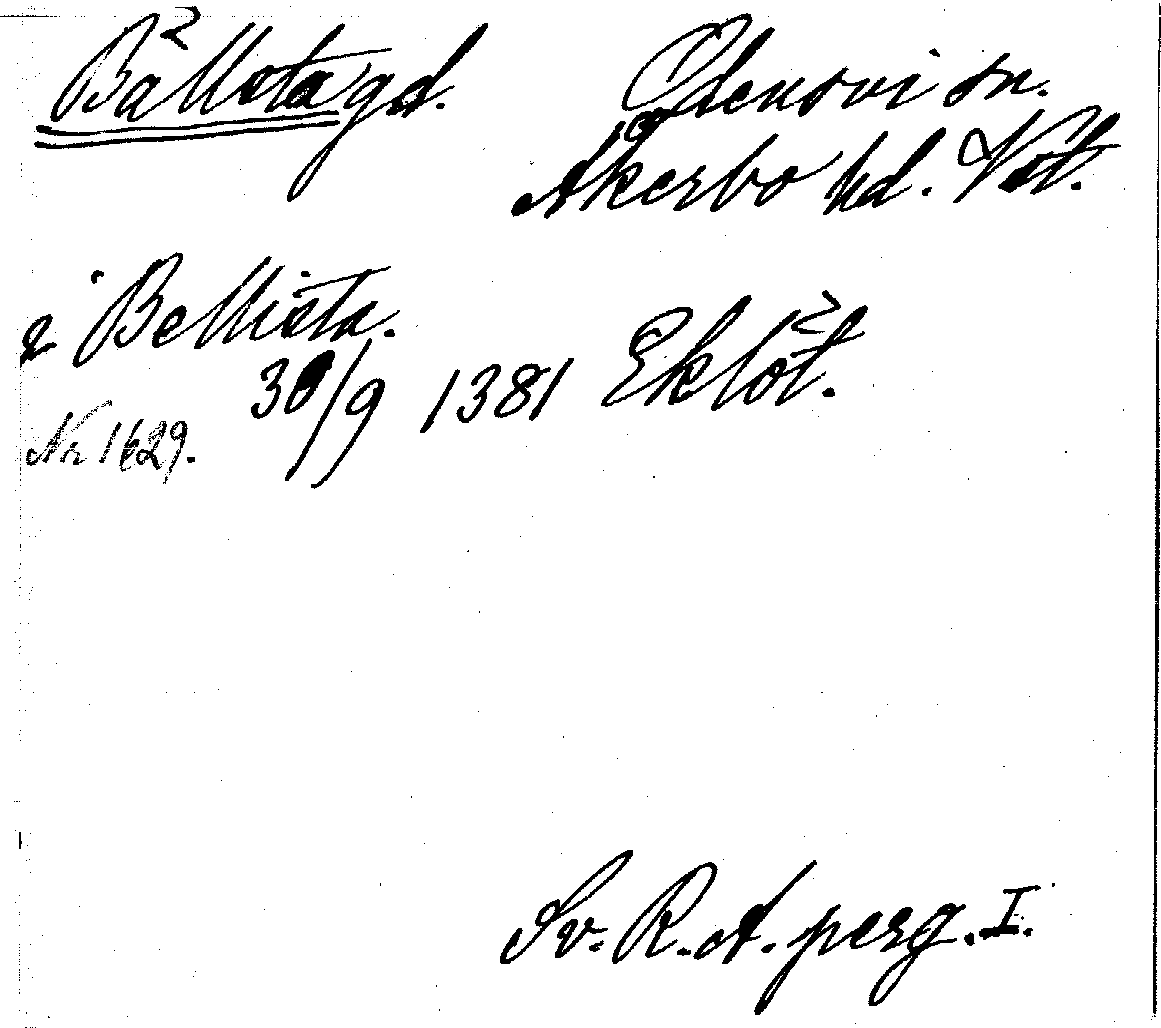 Bällsta gd. Odensvi sn.
Åkerbo hd. Vst.
i Bellista.
30/9 1381 Eklöt.
Nr 1629.
Sv. R. A. perg. I.